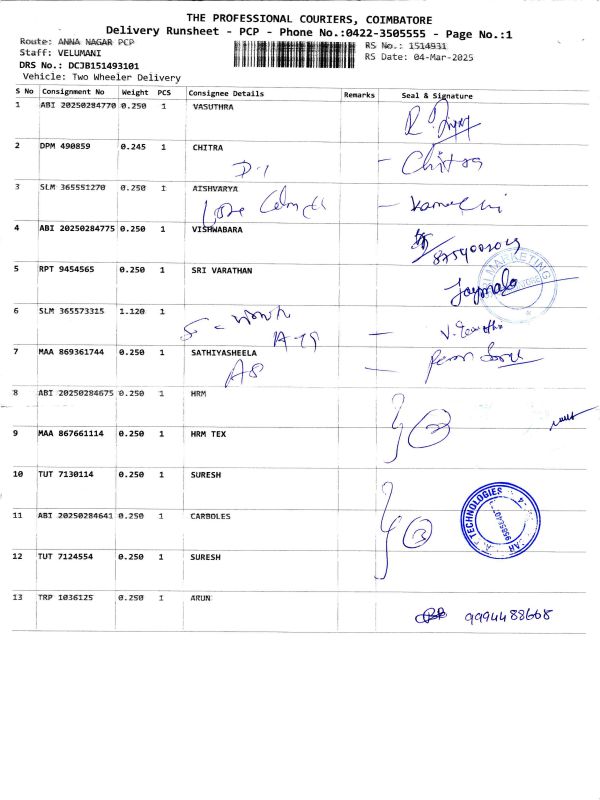 THE PROFESSIONAL COURIERS, COIMBATORE
Delivery Runsheet - PCP - Phone No.:0422-3505555 - Page No.:1
Route: ANNA NAGAR PCP
RS No.: 1514931
Staff: VELUMANI
RS Date: 04-Mar-2025
DRS No.: DCJB151493101
Vehicle: Two Wheeler Delivery
S No Consignment No Weight PCS Consignee Details Remarks Seal & Signature
1 ABI 20250284770 0.250 1 VASUTHRA
2 DPM 490859 0.245 1 CHITRA
Chitra
3 SLM 365551270 0.250 1 AISHVARYA
4 ABI 20250284775 0.250 1 VISHWABARA
5 RPT 9454565 0.250 1 SRI VARATHAN
MARKETING
6 SLM 365573315 1.120 1
A-19
7 MAA 869361744 0.250 1 SATHIYASHEELA
A8
8 ABI 20250284675 0.250 1 HRM
2
9 MAA 867661114 0.250 1 HRM TEX
10 TUT 7130114 0.250 1 SURESH
TECHNOLOGIES
11 ABI 20250284641 0.250 1 CARBOLES
3
12 TUT 7124554 0.250 1 SURESH
13 TRP 1036125 0.250 1 ARUN
9994488668